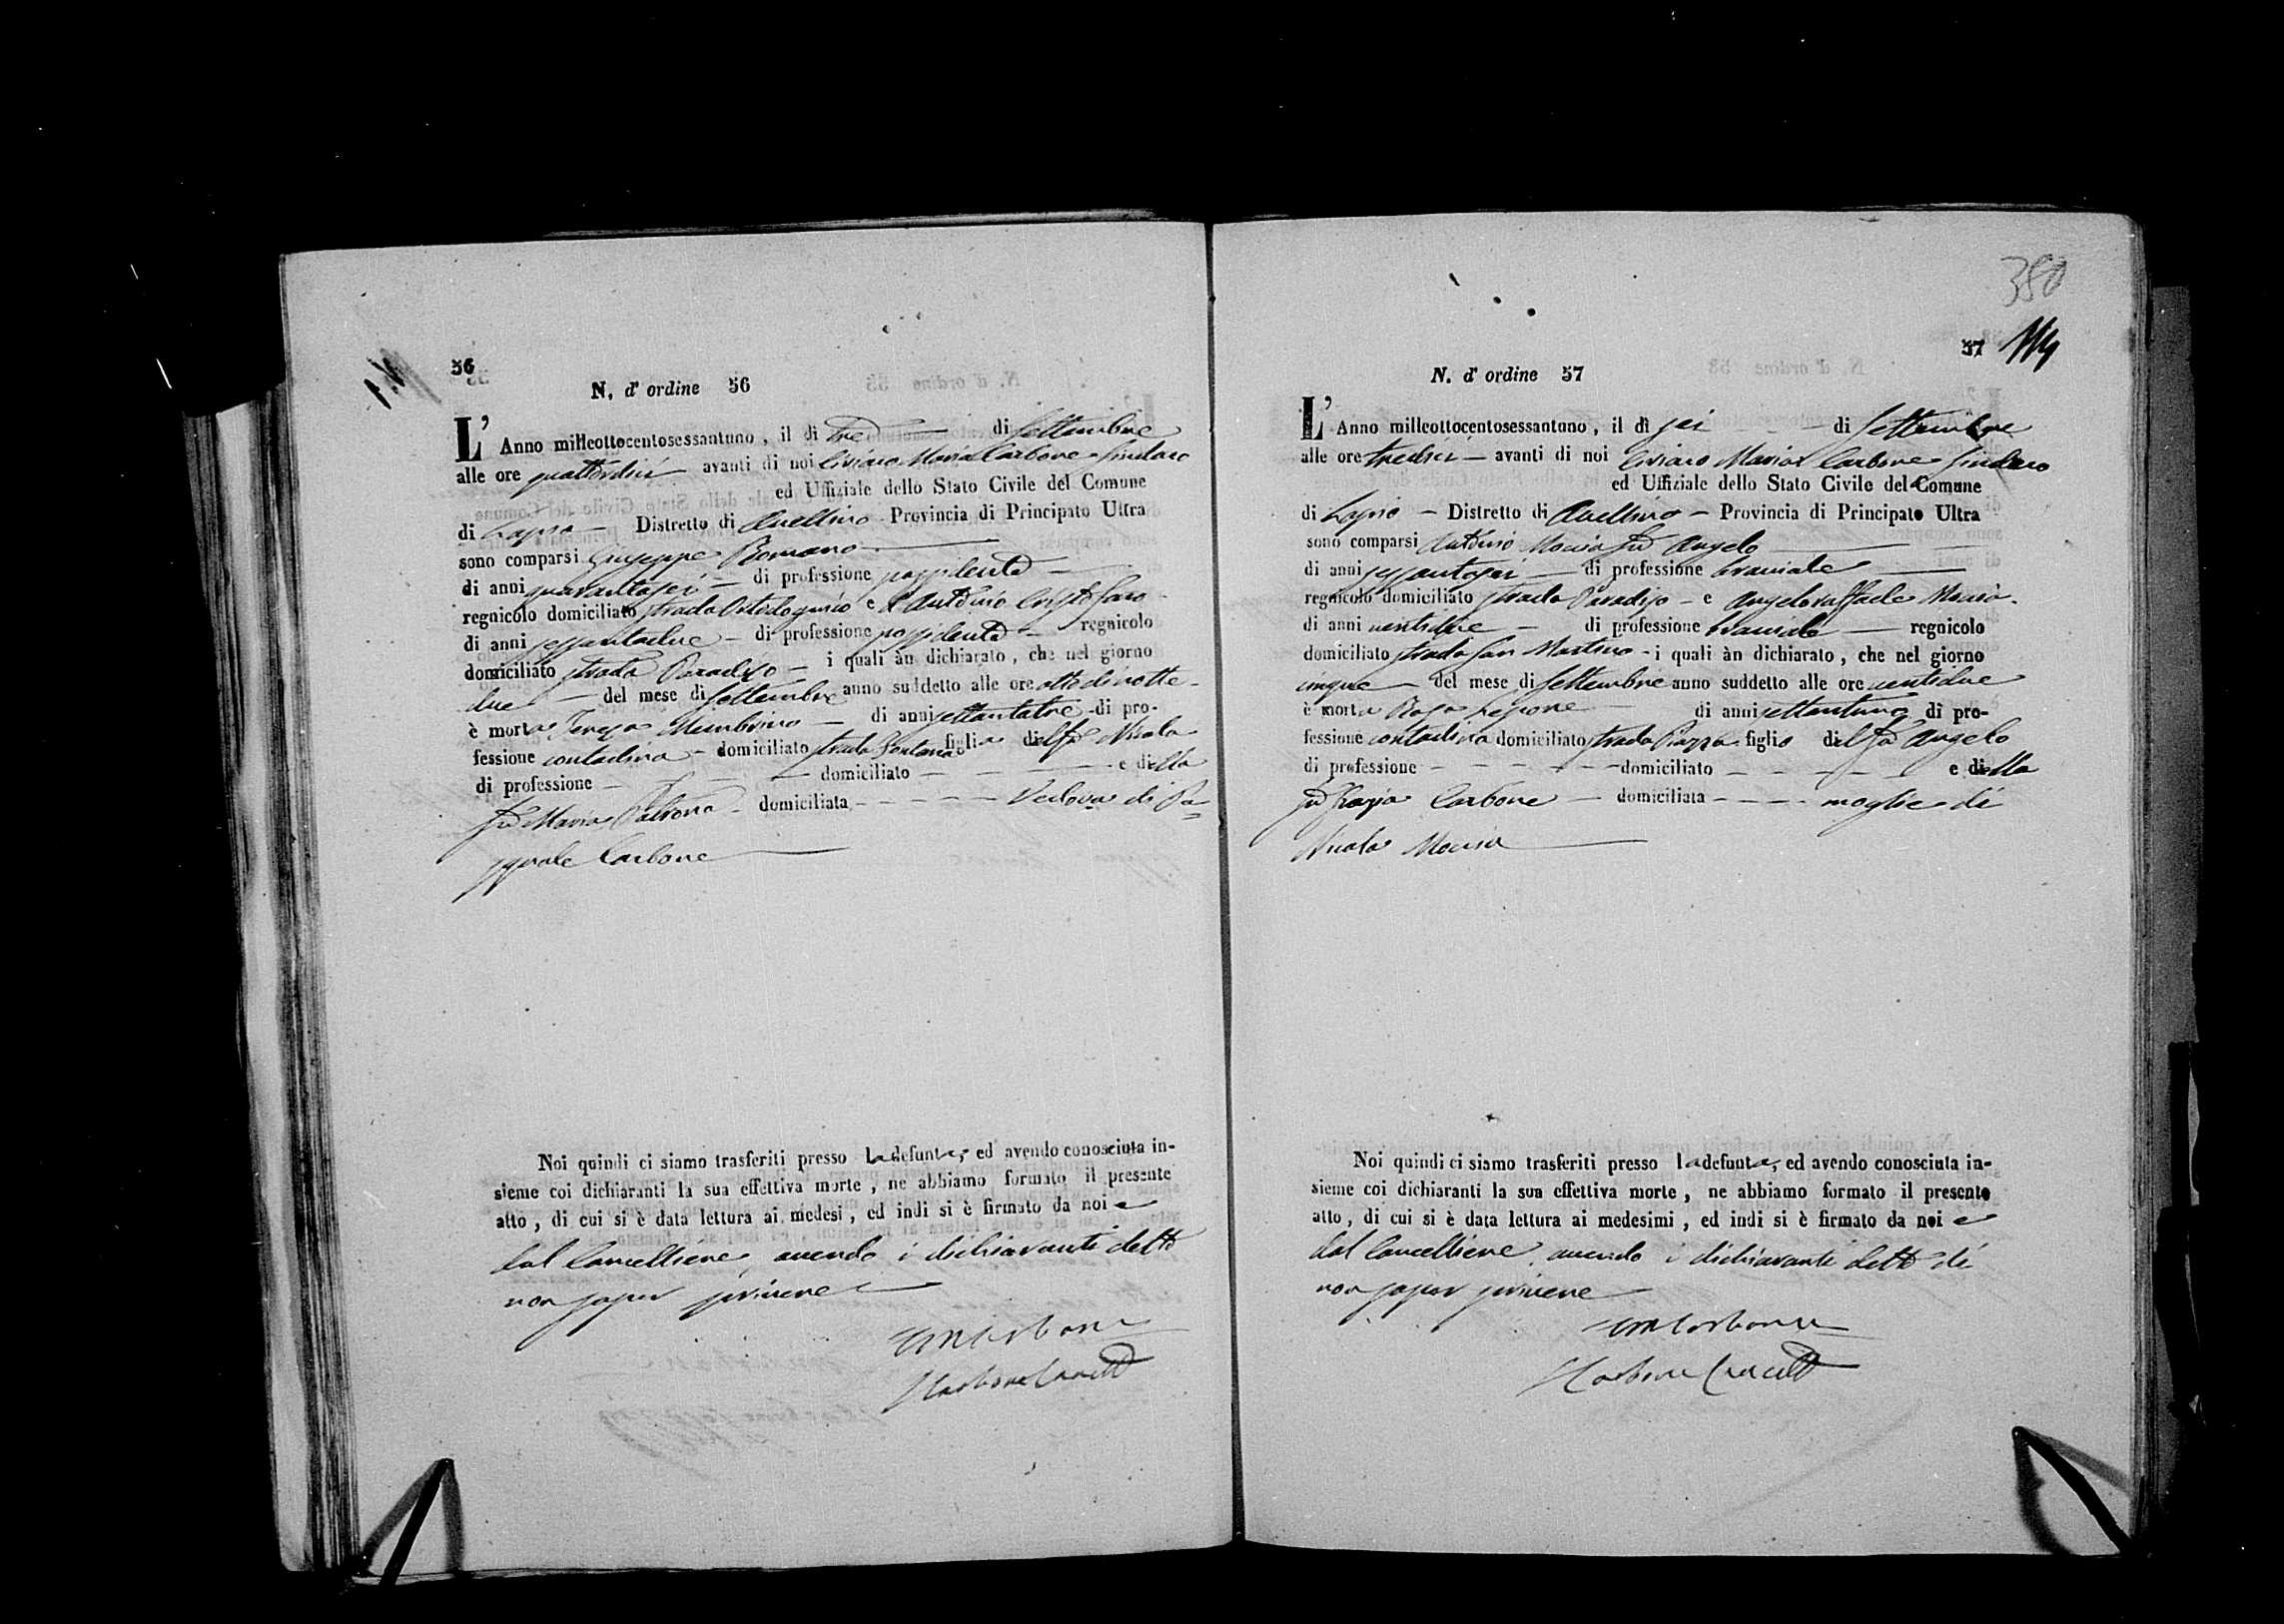 56
N. d' ordine 56
L' Anno milleottocentosessantuno, il dì tre di Settembre
alle ore quattordici avanti di noi Ciriaco Maria Carbone Sindaco
ed Uffiziale dello Stato Civile del Comune
di Lapio Distretto di Avellino Provincia di Principato Ultra
sono comparsi Giuseppe Romano
di anni quarantasei di professione possidente
regnicolo domiciliato strada e Antonio Cristofaro
di anni sessantadue di professione possidente regnicolo
domiciliato strada Paradiso i quali àn dichiarato, che nel giorno
due del mese di Settembre anno suddetto alle ore otto di notte
è morta Teresa di anni settantatre di pro-
fessione contadina domiciliato strada Fontana figlia del fu Nicola
di professione domiciliato e della
fu Maria domiciliata Vedova di Pa=
squale Carbone
Noi quindi ci siamo trasferiti presso la defunta, ed avendo conosciuta in-
sieme coi dichiaranti la sua effettiva morte, ne abbiamo formato il presente
atto, di cui si è data lettura ai medesi, ed indi si è firmato da noi e
dal Cancelliere, avendo i dichiaranti detto
non saper scrivere
CM Carbone
Carbone Cancell
380
57 114
N. d' ordine 57
L' Anno milleottocentosessantuno, il dì sei di Settembre
alle ore tredici avanti di noi Ciriaco Maria Carbone Sindaco
ed Uffiziale dello Stato Civile del Comune
di Lapio Distretto di Avellino Provincia di Principato Ultra
sono comparsi Antonio Moccia fu Angelo
di anni sessantasei di professione bracciale
regnicolo domiciliato strada Paradiso e Angeloraffaele Moccia
di anni ventidue di professione bracciale regnicolo
domiciliato strada San Martino i quali àn dichiarato, che nel giorno
cinque del mese di Settembre anno suddetto alle ore ventidue
è morta Rosa di anni settantuno di pro-
fessione contadina domiciliato strada Piazza figlio del fu Angelo
di professione domiciliato e della
fu Grazia Carbone domiciliata moglie di
Nicola Moccia
Noi quindi ci siamo trasferiti presso la defunta, ed avendo conosciuta in-
sieme coi dichiaranti la sua effettiva morte, ne abbiamo formato il presente
atto, di cui si è data lettura ai medesimi, ed indi si è firmato da noi e
dal Cancelliere, avendo i dichiaranti detto di
non saper scrivere
CM Carbone
Carbone Cancell